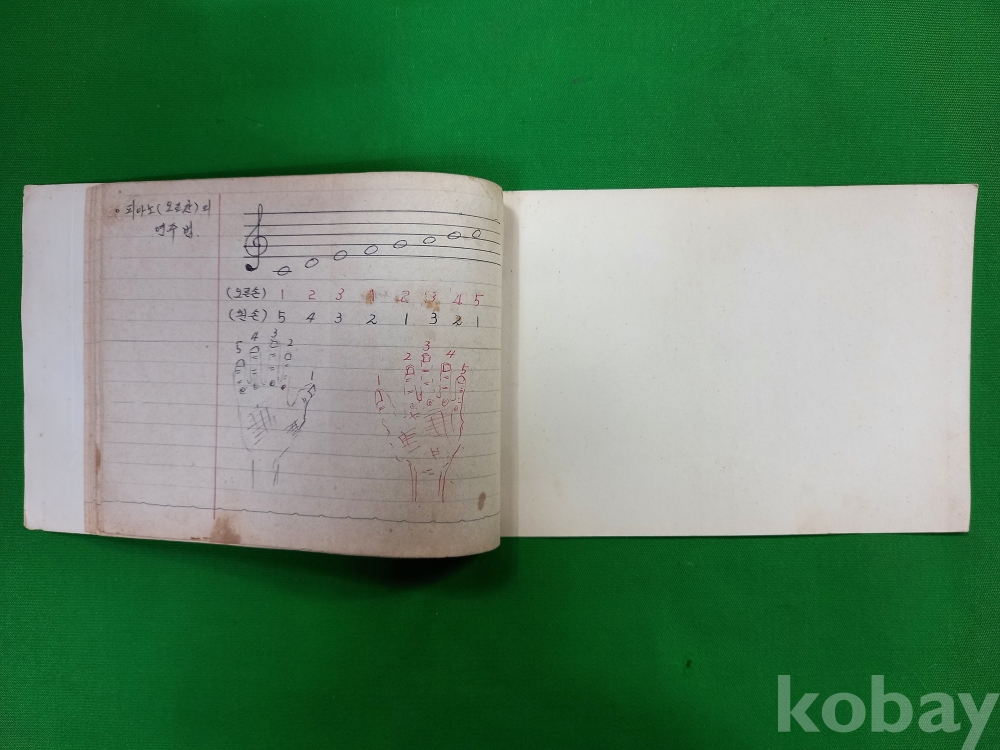 ◦ 피아노(오르간)의
연주법.
(오른손) 1 2 3 1 2 3 4 5
(왼손) 5 4 3 2 1 3 2 1
5 4 3 2 1
1 2 3 4 5
kobay